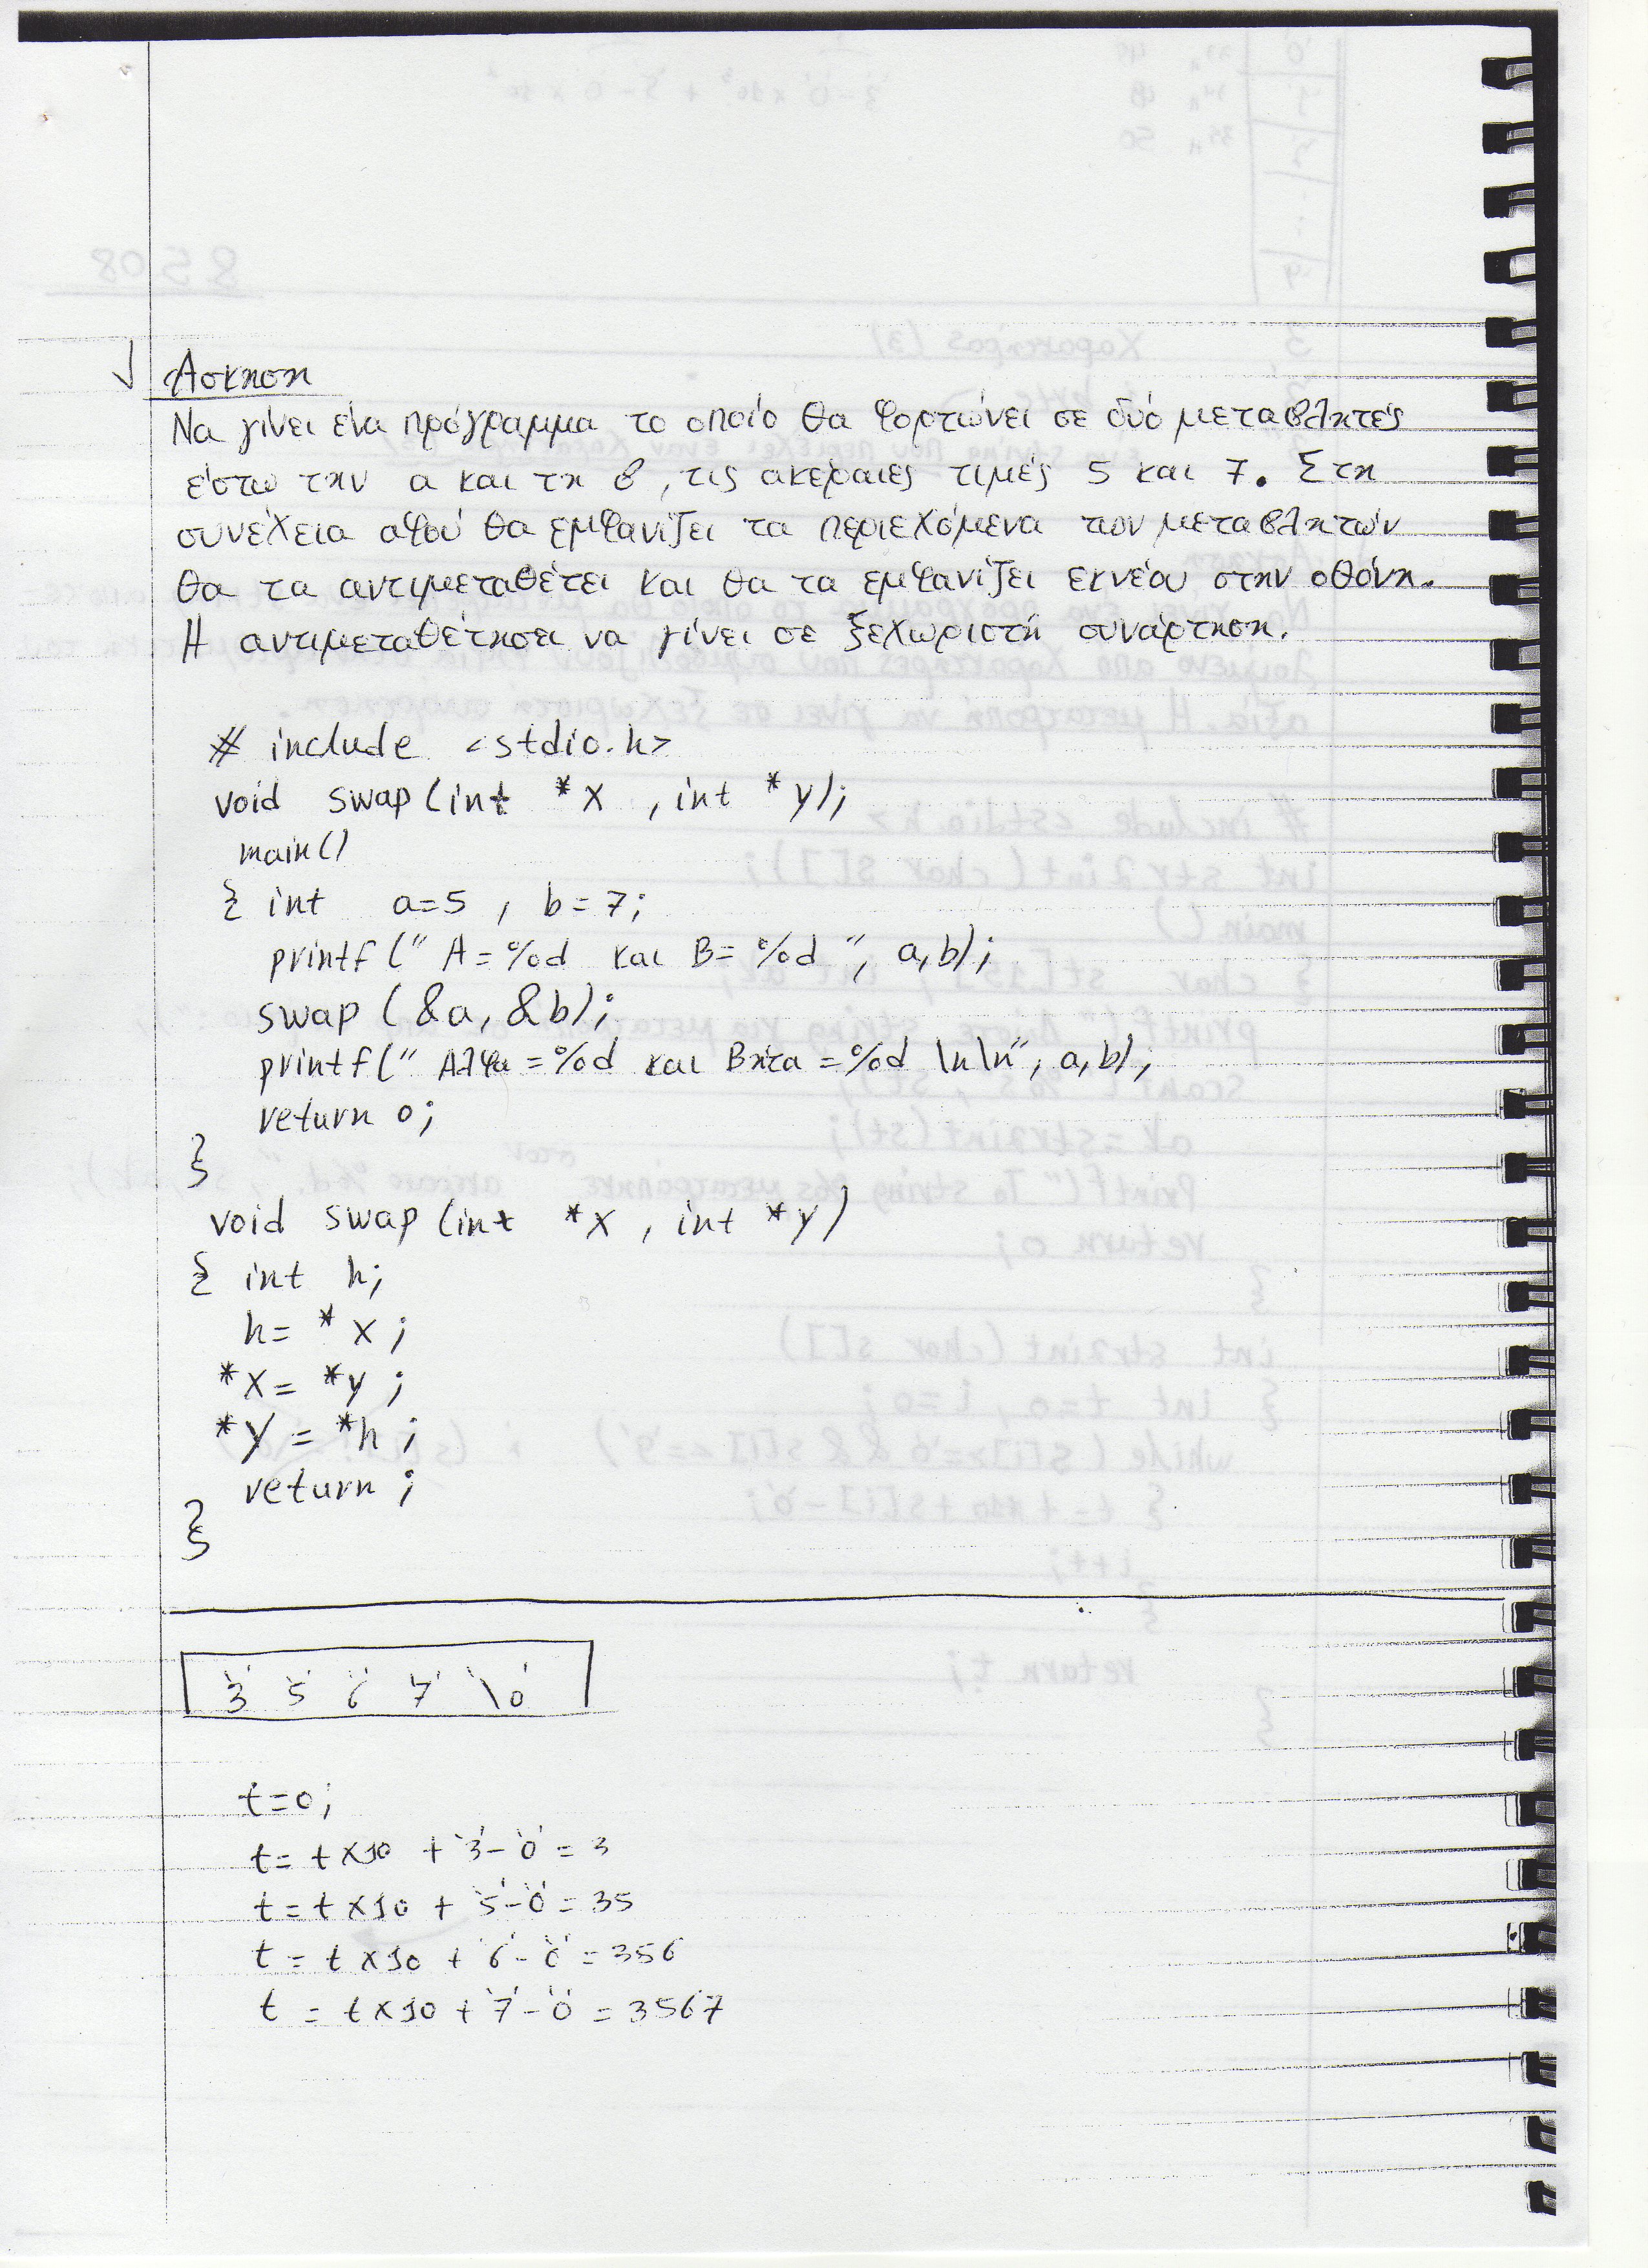 Ασκηση
Να γίνει ένα πρόγραμμα το οποίο θα φορτώνει σε δύο μεταβλητές
έστω την α και τη β, τις ακέραιες τιμές 5 και 7. Στη
συνέχεια αφού θα εμφανίζει τα περιεχόμενα των μεταβλητών
θα τα αντιμεταθέτει και θα τα εμφανίζει εκνέου στην οθόνη.
Η αντιμεταθέτησει να γίνει σε ξεχωριστή συνάρτηση.
# include <stdio.h>
void swap(int *x , int *y);
main()
{ int a=5 , b=7;
printf(" A=%d και B=%d ", a,b);
swap (&a, &b);
printf(" Αλφα =%d και Βητα =%d \n\n", a,b);
return 0;
}
void swap(int *x , int *y)
{ int h;
h= *x ;
*x= *y ;
*y = *h ;
return ;
}
'3' '5' '6' '7' '\0'
t=0;
t= t x10 + '3'-'0' = 3
t= t x10 + '5'-'0' = 35
t = t x10 + '6'-'0' = 356
t = t x10 + '7'-'0' = 3567